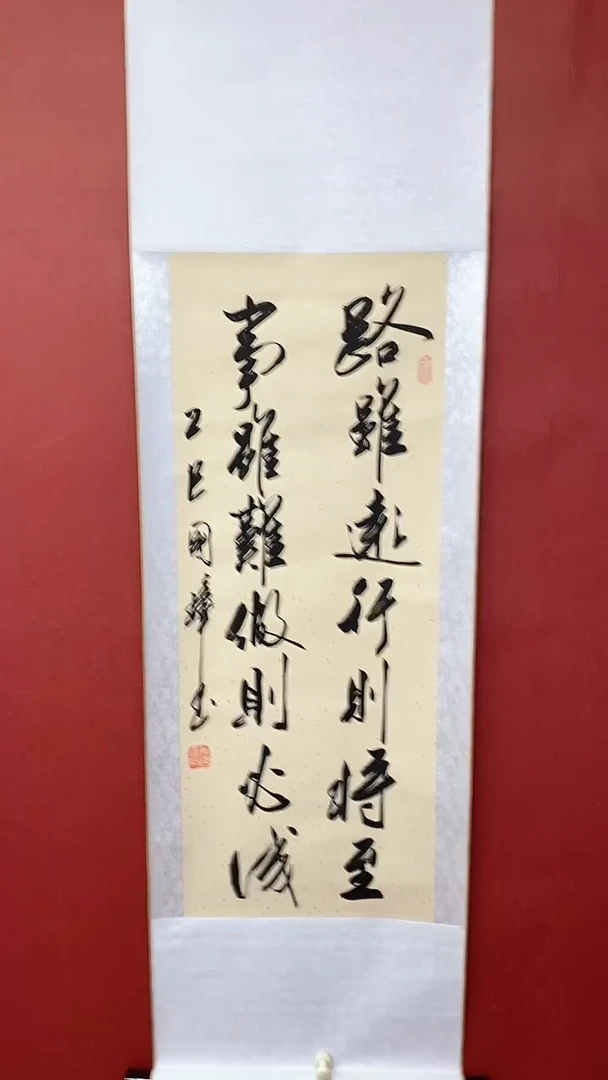 路雖遠行則將至
事雖難做則必成
乙巳國璋书